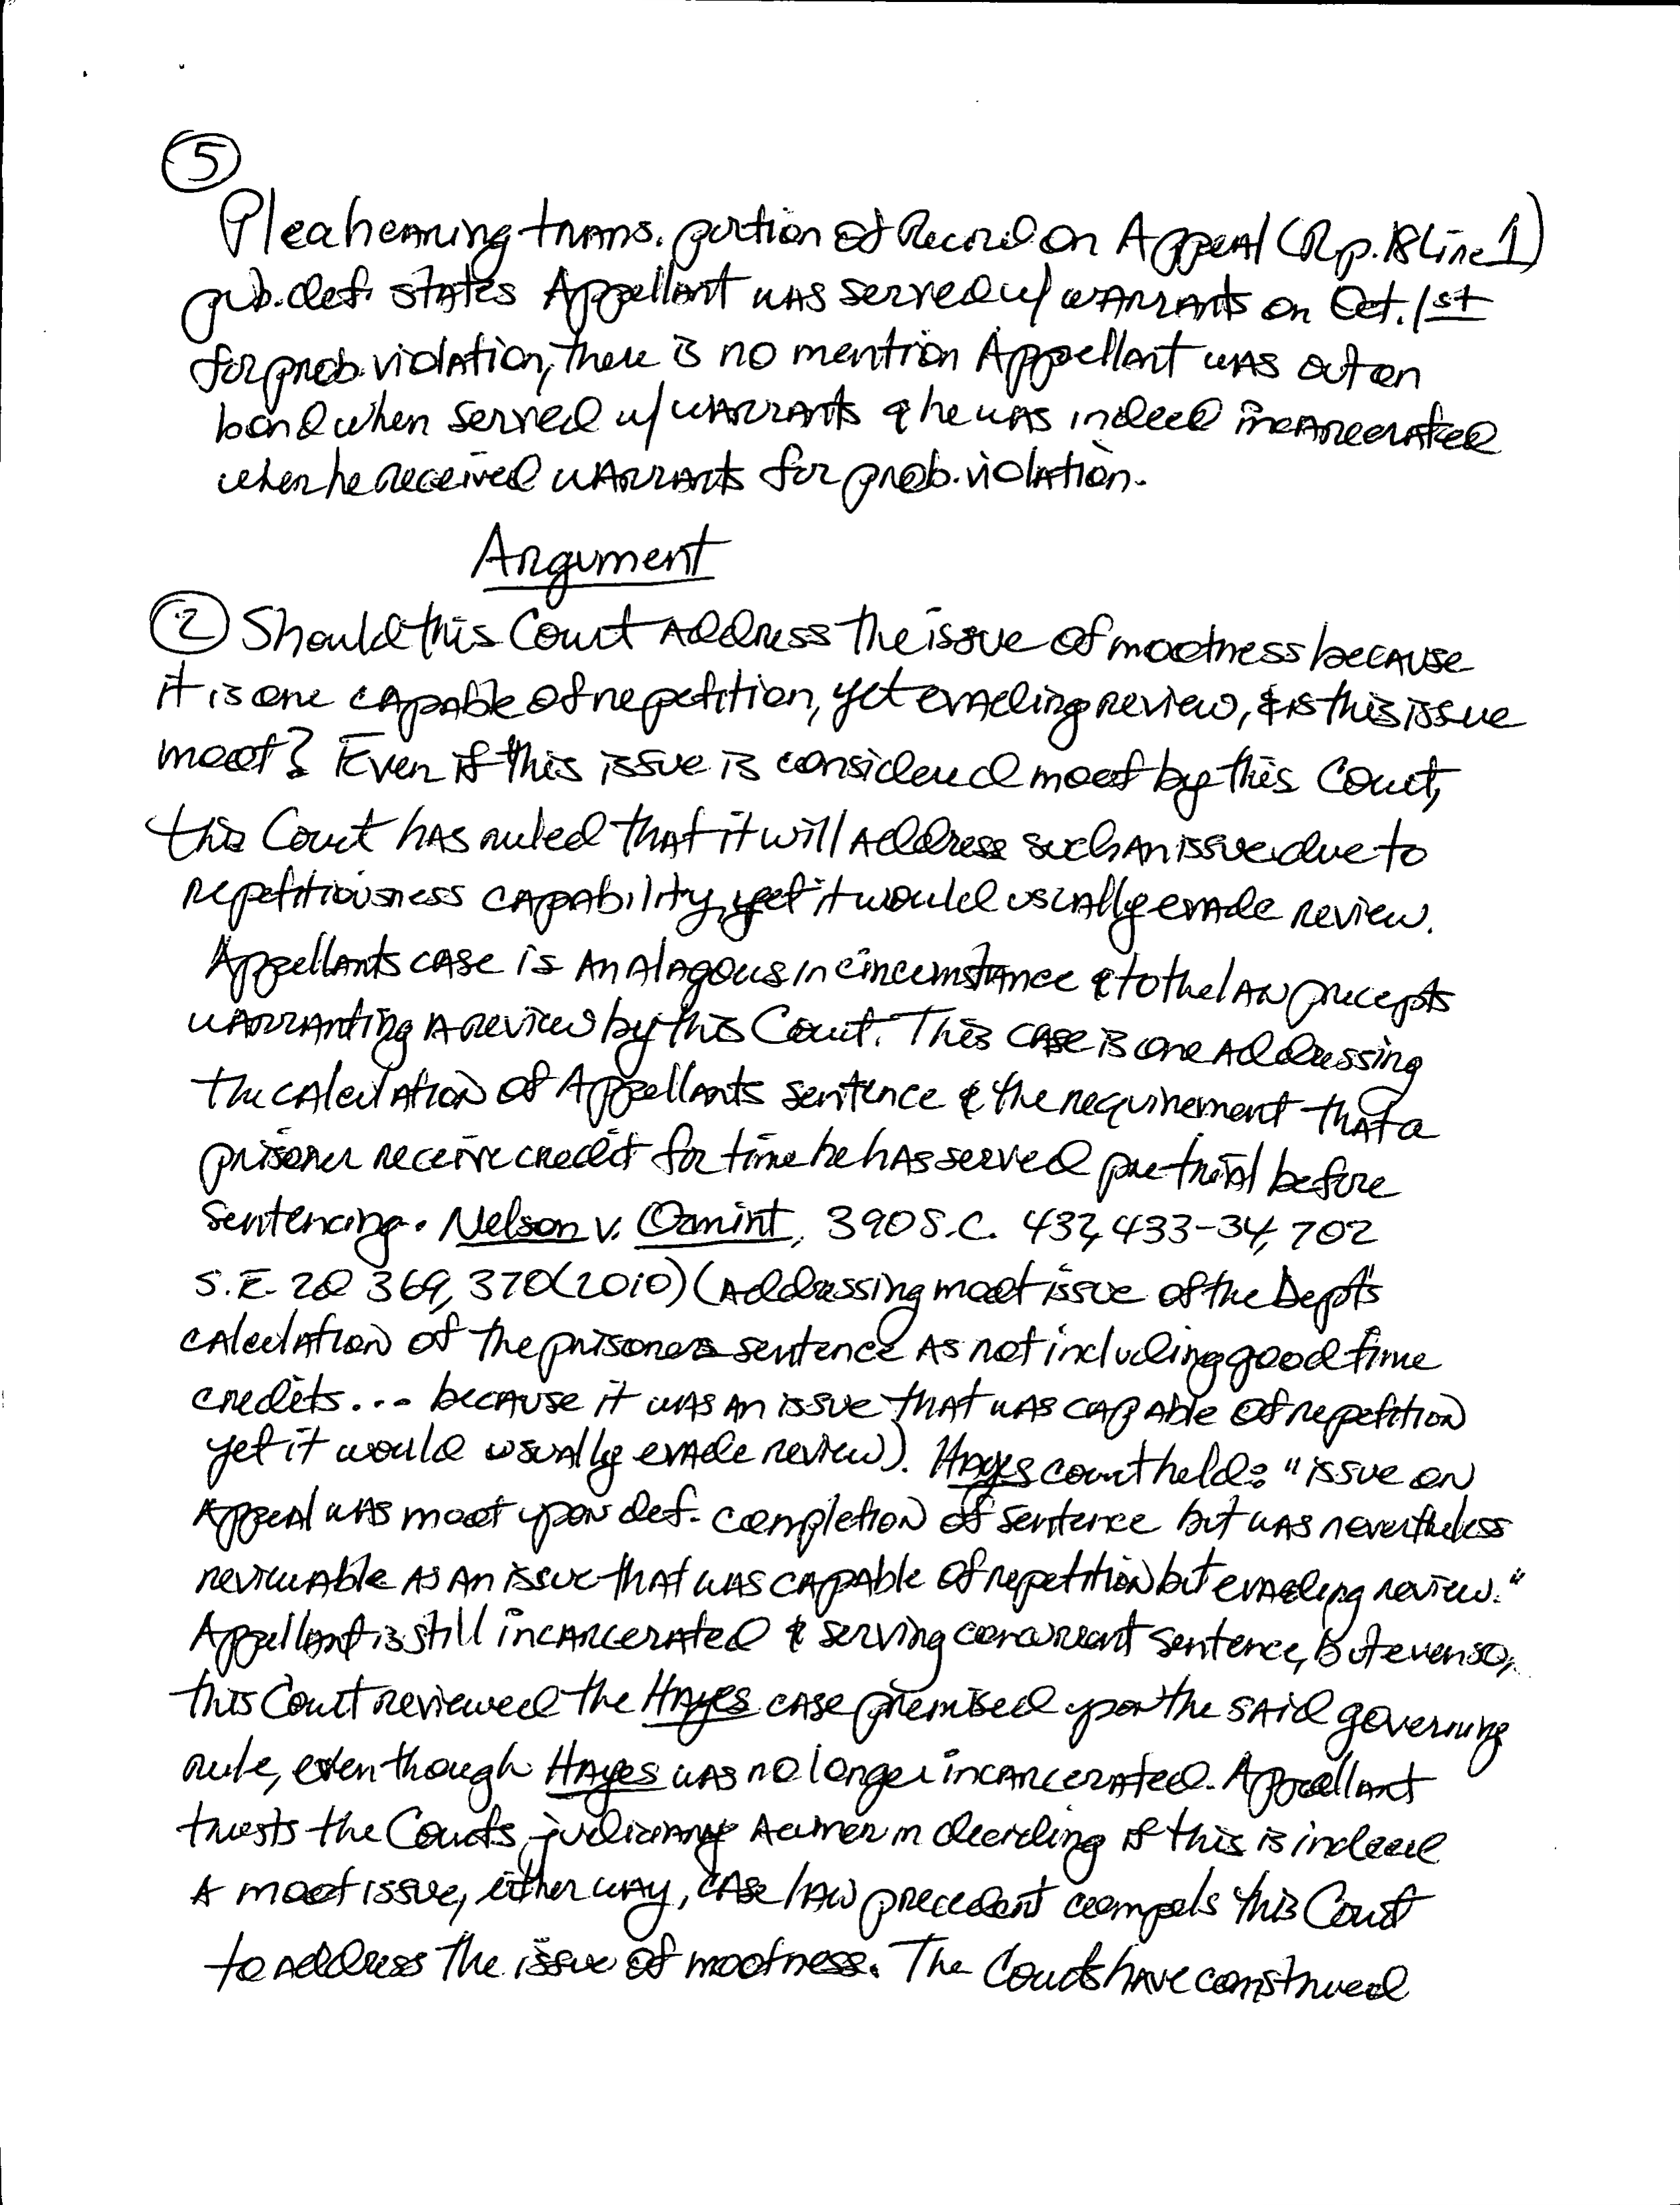 5
Plea hearing trans. portion of Record on Appeal (Rp. 18 Line 1)
pub. def. states Appellant was served w/ warrants on Oct. 1st
for prob. violation, there is no mention Appellant was out on
bond when served w/ warrants & he was indeed incarcerated
when he received warrants for prob. violation.
Argument
2 Should this Court address the issue of mootness because
it is one capable of repetition, yet evading review, & is this issue
moot? Even if this issue is considered moot by this Court,
this Court has ruled that it will address such an issue due to
repetitiousness capability, yet it would usually evade review.
Appellants case is analagous in circumstance & to the law precepts
warranting a review by this Court. This case is one addressing
the calculation of Appellants sentence & the requirement that a
prisoner receive credit for time he has served pre-trial before
sentencing. Nelson v. Ozmint, 390 S.C. 432, 433-34, 702
S.E. 2d 369, 370 (2010) (addressing moot issue of the Dept's
calculation of the prisoners sentence as not including good time
credits... because it was an issue that was capable of repetition
yet it would usually evade review). Hayes court held: "issue on
appeal was moot upon def. completion of sentence but was nevertheless
reviewable as an issue that was capable of repetition but evading review."
Appellant is still incarcerated & serving concurrent sentence, but even so,
this Court reviewed the Hayes case premised upon the said governing
rule, even though Hayes was no longer incarcerated. Appellant
trusts the Courts judiciary acumen in deciding if this is indeed
a moot issue, either way, case law precedent compels this Court
to address the issue of mootness. The Courts have construed